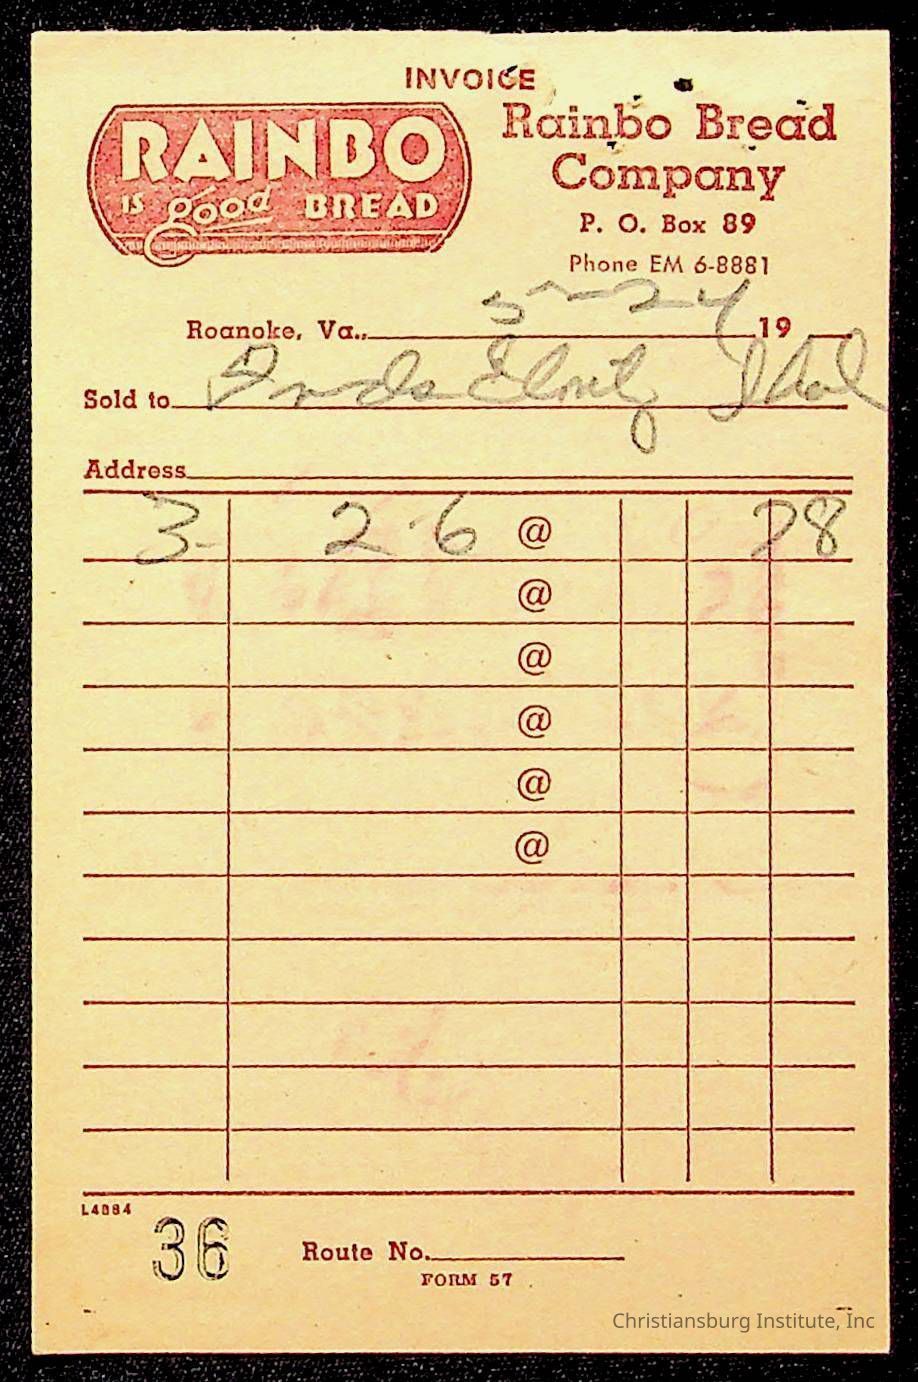 INVOICE
RAINBO
IS good BREAD
Rainbo Bread
Company
P. O. Box 89
Phone EM 6-8881
Roanoke, Va., 5-24 19
Sold to
Address
3 - 2-6 @ 78
@
@
@
@
@
L4884
36
Route No.
FORM 57
Christiansburg Institute, Inc